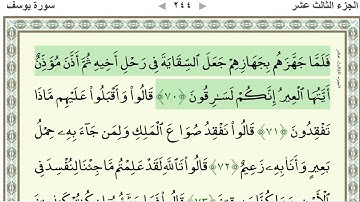 الجزء الثالث عشر ٢٤٤ سورة يوسف
فَلَمَّا جَهَّزَهُم بِجَهَازِهِمْ جَعَلَ ٱلسِّقَايَةَ فِى رَحْلِ أَخِيهِ ثُمَّ أَذَّنَ مُؤَذِّنٌ
أَيَّتُهَا ٱلْعِيرُ إِنَّكُمْ لَسَٰرِقُونَ ﴿٧٠﴾ قَالُوا۟ وَأَقْبَلُوا۟ عَلَيْهِم مَّاذَا
تَفْقِدُونَ ﴿٧١﴾ قَالُوا۟ نَفْقِدُ صُوَاعَ ٱلْمَلِكِ وَلِمَن جَآءَ بِهِۦ حِمْلُ
بَعِيرٍ وَأَنَا۠ بِهِۦ زَعِيمٌ ﴿٧٢﴾ قَالُوا۟ تَٱللَّهِ لَقَدْ عَلِمْتُم مَّا جِئْنَا لِنُفْسِدَ فِى